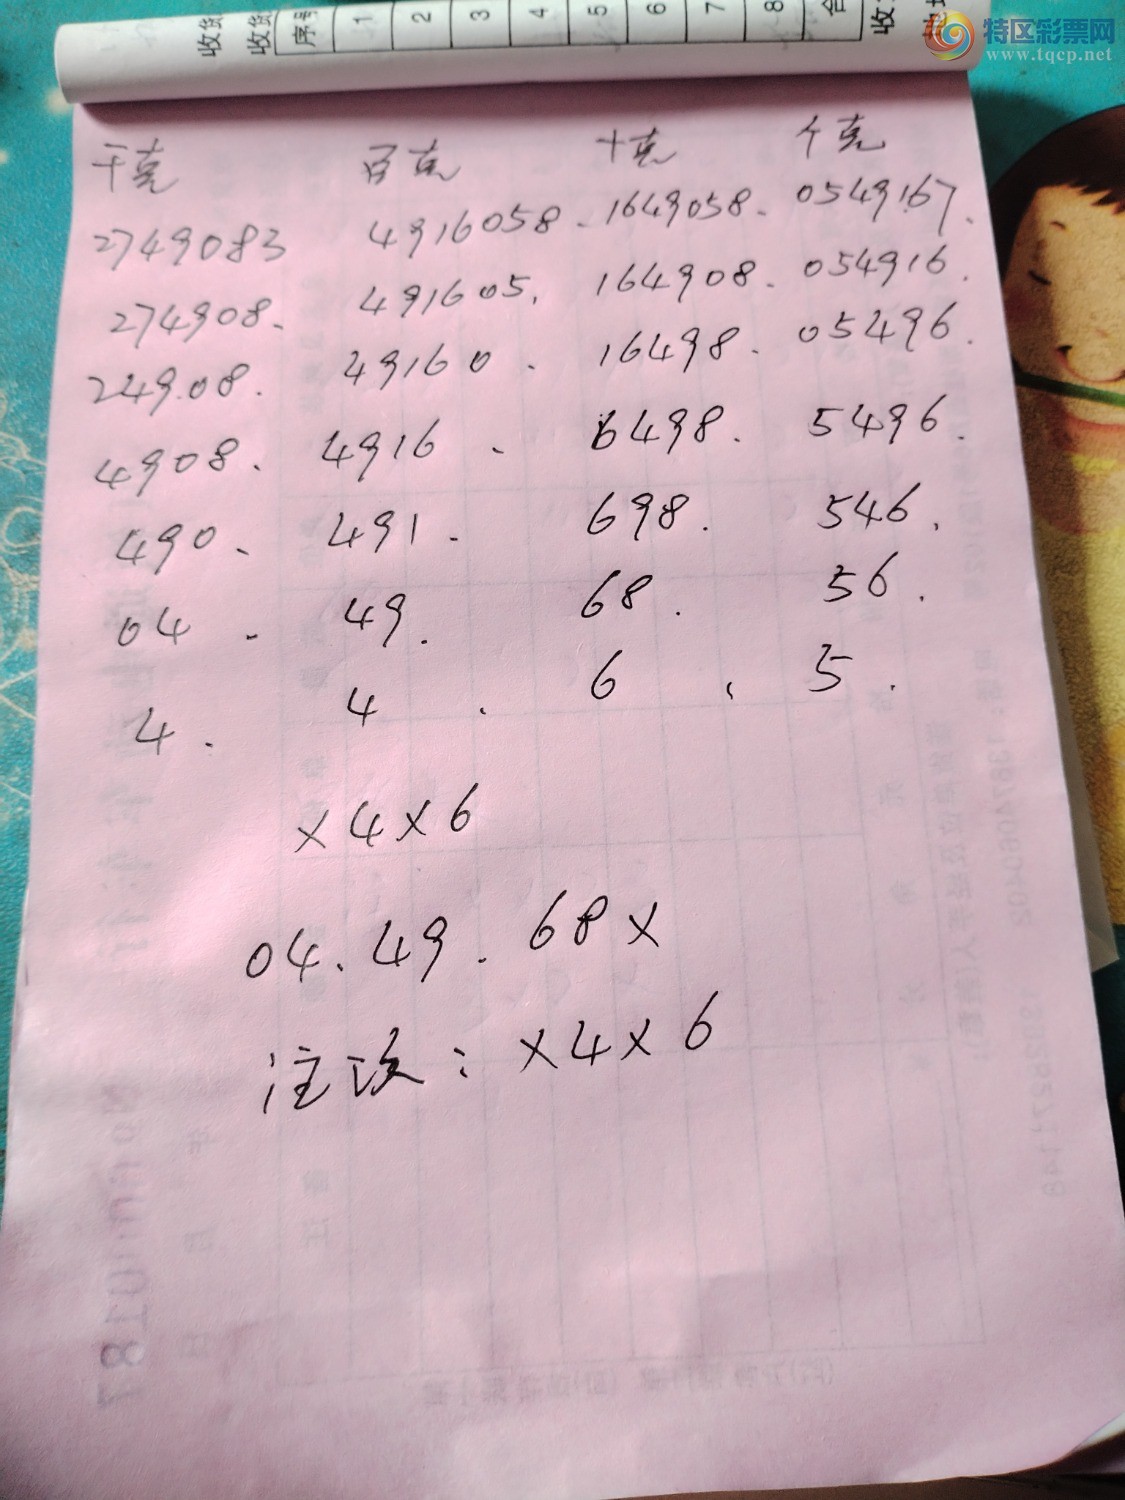 收货
收货
序号 1 2 3 4 5 6 7 8 合
收
特区彩票网
www.tqcp.net
千克 百克 十克 个克
2749083 4916058 . 1649058 . 0549167 .
274908 . 491605 . 164908 . 054916 .
24908 . 49160 . 16498 . 05496 .
4908 . 4916 . 6498 . 5496 .
490 . 491 . 698 . 546 .
04 . 49 . 68 . 56 .
4 . 4 . 6 . 5 .
X4X6
04 . 49 . 68X
注攻：X4X6